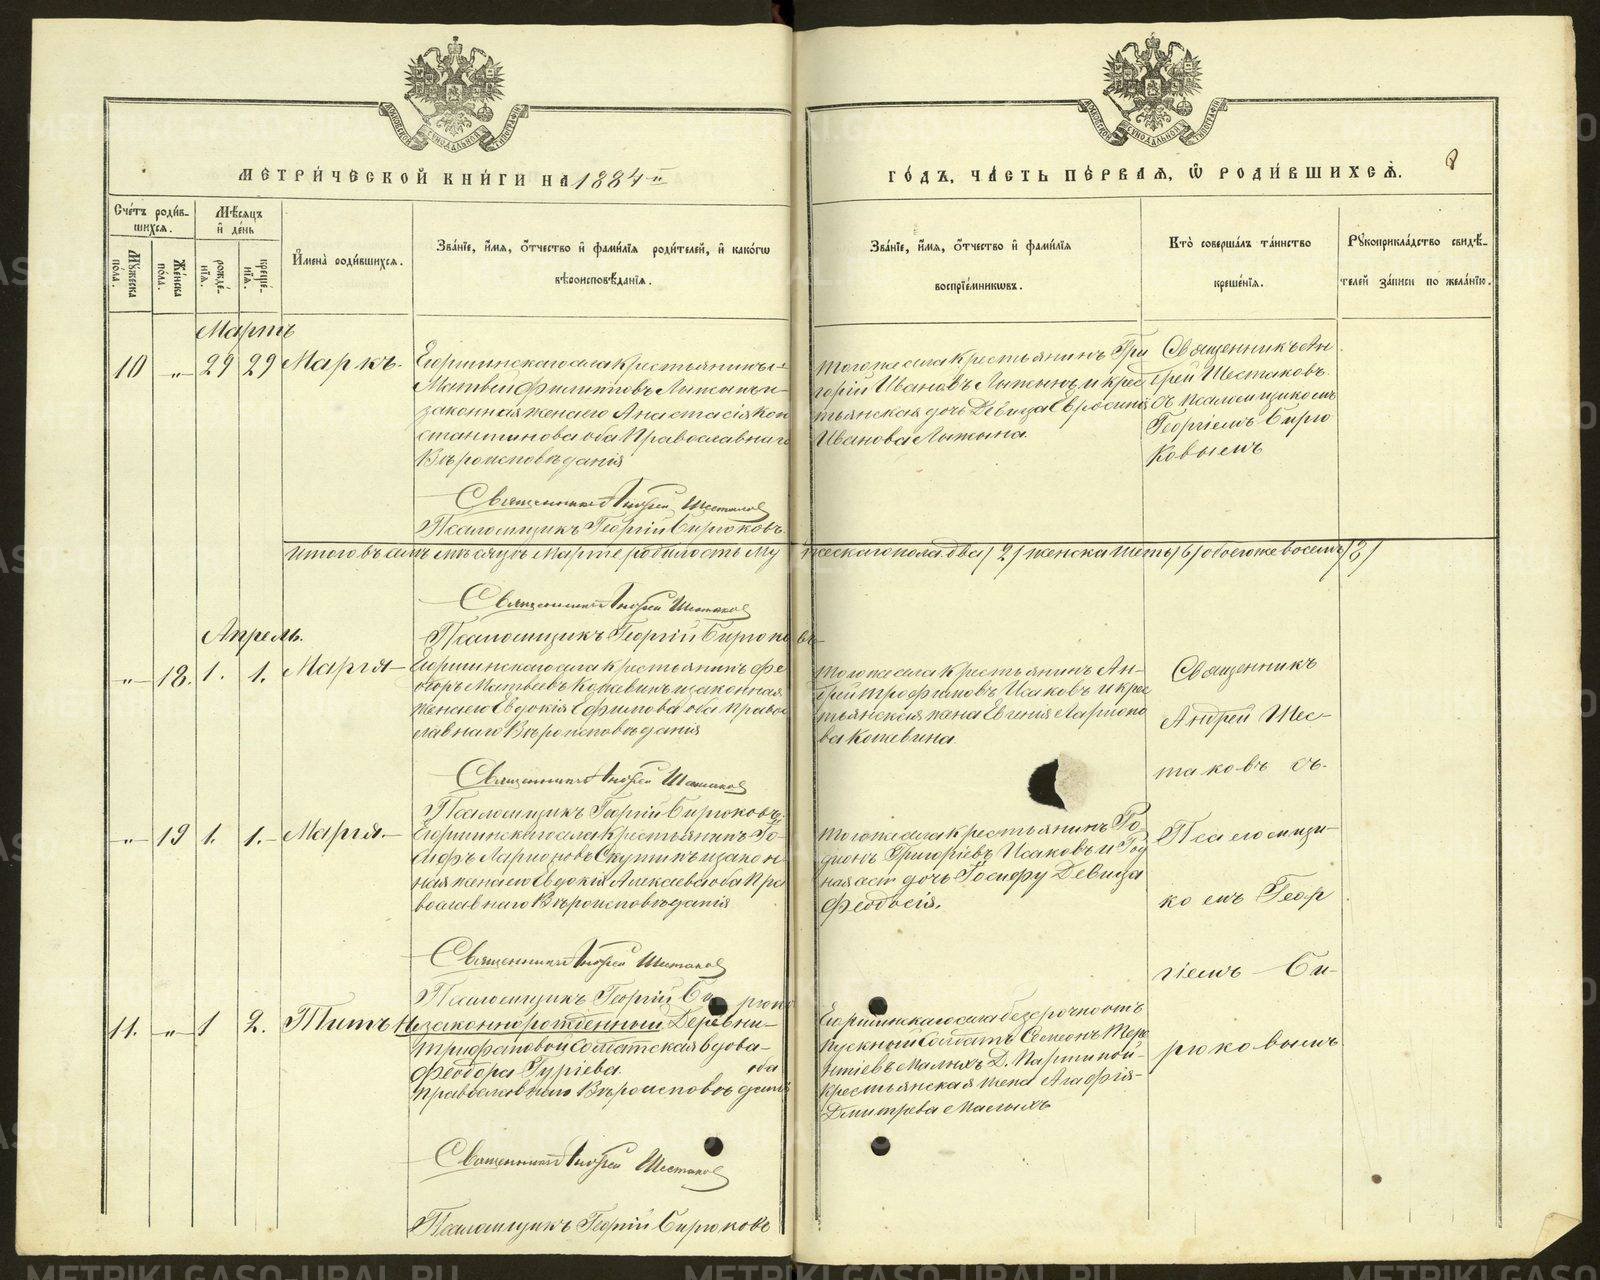 МЕТРИ́ЧЕСКОЙ КНИ́ГИ НА 1884 й
ГО́ДЪ, ЧА́СТЬ ПЕ́РВАЯ, Ѡ РОДИ́ВШИХСѦ.
8
Сче́тъ роди́в-
шихсѧ.
Мѣ́сѧцъ
и҆ де́нь
Мꙋ́жеска по́ла.
Же́нска по́ла.
рожде́-
нїѧ.
креще́-
нїѧ.
И҆мена̀ роди́вшихсѧ.
Зва́нїе, и҆́мѧ, ѻ҆́тчество и҆ фами́лїѧ роди́телей, и҆ како́гѡ
вѣроисповѣ́данїѧ.
Зва́нїе, и҆́мѧ, ѻ҆́тчество и҆ фами́лїѧ
воспрїе́мникѡвъ.
Кто̀ соверша́лъ та́инство
креще́нїѧ.
Рꙋкоприкла́дство свидѣ́-
телей за́писи по жела́нїю.
Мартъ
10 „ 29 29 Маркъ.
Егоршинскаго села крестьянинъ
Матвей Филиповъ Лыжинъ и
законная жена его Анастасія Кон
стантинова оба Православнаго
Вѣроисповѣданія
Священникъ Андрей Шестаковъ
Псаломщикъ Георгій Бирюковъ
того же села крестьянинъ Гри
горій Ивановъ Лыжинъ и крес
тьянская дочь Девица Евросинія
Иванова Лыжина.
Священникъ Ан
дрей Шестаковъ
съ псаломщикомъ
Георгіемъ Бирю
ковымъ
Итого въ семъ мѣсяцѣ Мартѣ родилось му жескаго пола два /2/ женска шесть /6/ обоего же восемь /8/
Священникъ Андрей Шестаковъ
Псаломщикъ Георгій Бирюковъ
Апрель.
„ 18. 1. 1. Марія
Егоршинскаго села крестьянинъ Фе
доръ Матвеевъ Кожевинъ и законная
жена его Евдокія Ефимова оба Право
славнаго Вѣроисповѣданія
Священникъ Андрей Шестаковъ
Псаломщикъ Георгій Бирюковъ.
того же села крестьянинъ Ан-
дрей Трофимовъ Исаковъ и крес
тьянская жена Евгенія Ларионо
ва Кожевина.
Священникъ
Андрей Шес-
таковъ съ
Псаломщи-
комъ Геор
гіемъ Би-
рюковымъ
„ 19 1. 1. Марія.
Егоршинскаго села крестьянинъ Іо-
сифъ Ларионовъ Скутинъ и закон
ная жена его Евдокія Алексѣева оба Пра
вославнаго Вѣроисповѣданія
Священникъ Андрей Шестаковъ
Псаломщикъ Георгій Бирюко
того же села крестьянинъ Ро-
діонъ Григоріевъ Исаковъ и Род
ная дочь Іосифу Девица
Феодосія.
11. „ 1 2. Титъ Незаконнорожденный
Деревни
Трифановой Солдатская вдова
Феодора Гуріева. оба
Православнаго Вѣроисповѣданія
Священникъ Андрей Шестаковъ
Псаломщикъ Георгій Бирюковъ
Егоршинскаго села безсрочноот
пускный Солдатъ Семеонъ Тере
нтіевъ Малыхъ Д. Паршиной
крестьянская жена Агафія
Дмитрева Малыхъ
METRIKI.GASO-URAL.RU